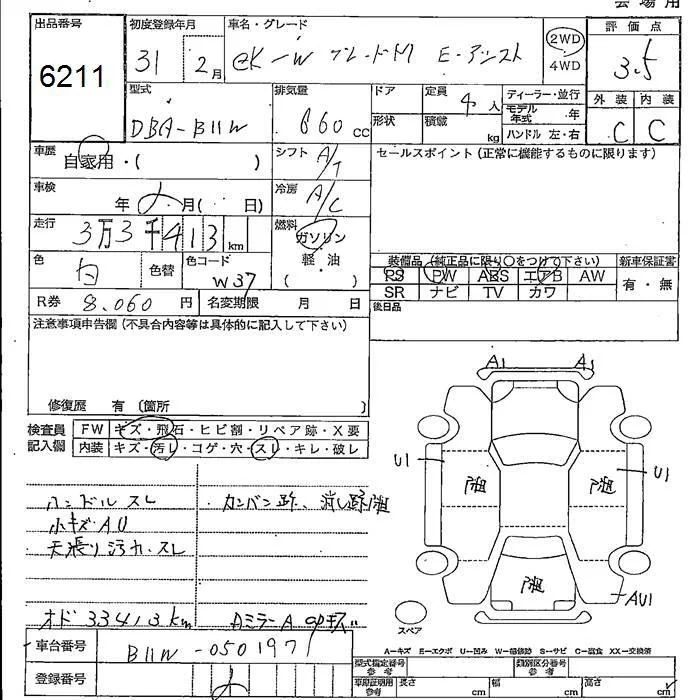 会場用
出品番号 初度登録年月 車名・グレード 評価点
6211 31 2月 eK-W ブレードM E-アシスト 2WD 4WD 3.5
型式 排気量 ドア 定員 4人 ディーラー・並行 外装 内装
DBA-B11W 660cc 形状 積載 kg モデル年式 .年 C C
ハンドル 左・右
車歴 自家用・( ) シフト A/T セールスポイント (正常に機能するものに限ります)
車検 年 月( 日) 冷房 A/C
走行 3万3千413km 燃料 ガソリン・軽・油 ( )
色 白 色替 色コード W37
装備品 (純正品に限り○をつけて下さい) 新車保証書
PS PW ABS エアB AW 有・無
SR ナビ TV カワ
R券 8.060 円 名変期限 月 日
後日品
注意事項申告欄 (不具合内容等は具体的に記入して下さい)
修復歴 有 〔箇所 〕
検査員 記入欄
FW キズ・飛石・ヒビ割・リペア跡・X要
内装 キズ・汚レ・コゲ・穴・スレ・キレ・破レ
A1 A1
U1 U1
ハンドルスレ カンバン跡、消し跡
小キズ・AU
天張り汚れ・スレ
AU1
オド 33413km
スペア
A=キズ E=エクボ U=凹み W=補修跡 S=サビ C=腐食 XX=交換済
車台番号 B11W-0501971
登録番号
型式指定番号 参考 類別区分番号 参考
車庫証明用 参考 長さ cm 幅 cm 高さ cm